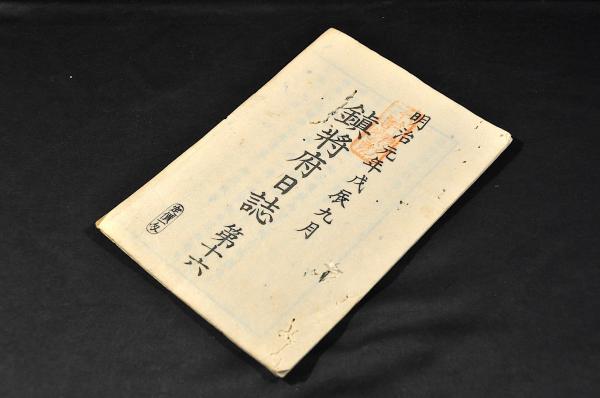 明治元年戊辰九月
鎮將府日誌 第十六